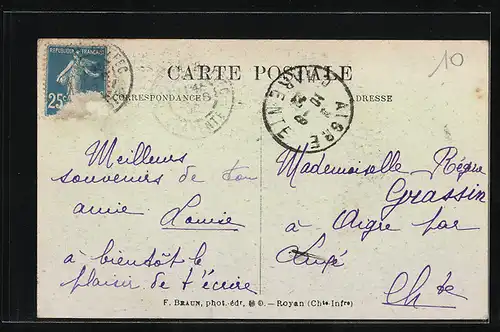 10
RÉPUBLIQUE FRANÇAISE
25c
CARTE POSTALE
CORRESPONDANCE
ADRESSE
AIGRE
CHARENTE
Meilleurs
souvenirs de ton
amie Louise
à bientôt le
plaisir de t'écrire
Mademoiselle Régine
Grassin
à Aigre par
Luxé
Chte
F. BRAUN, phot.-édr, Royan (Chte-Infre)